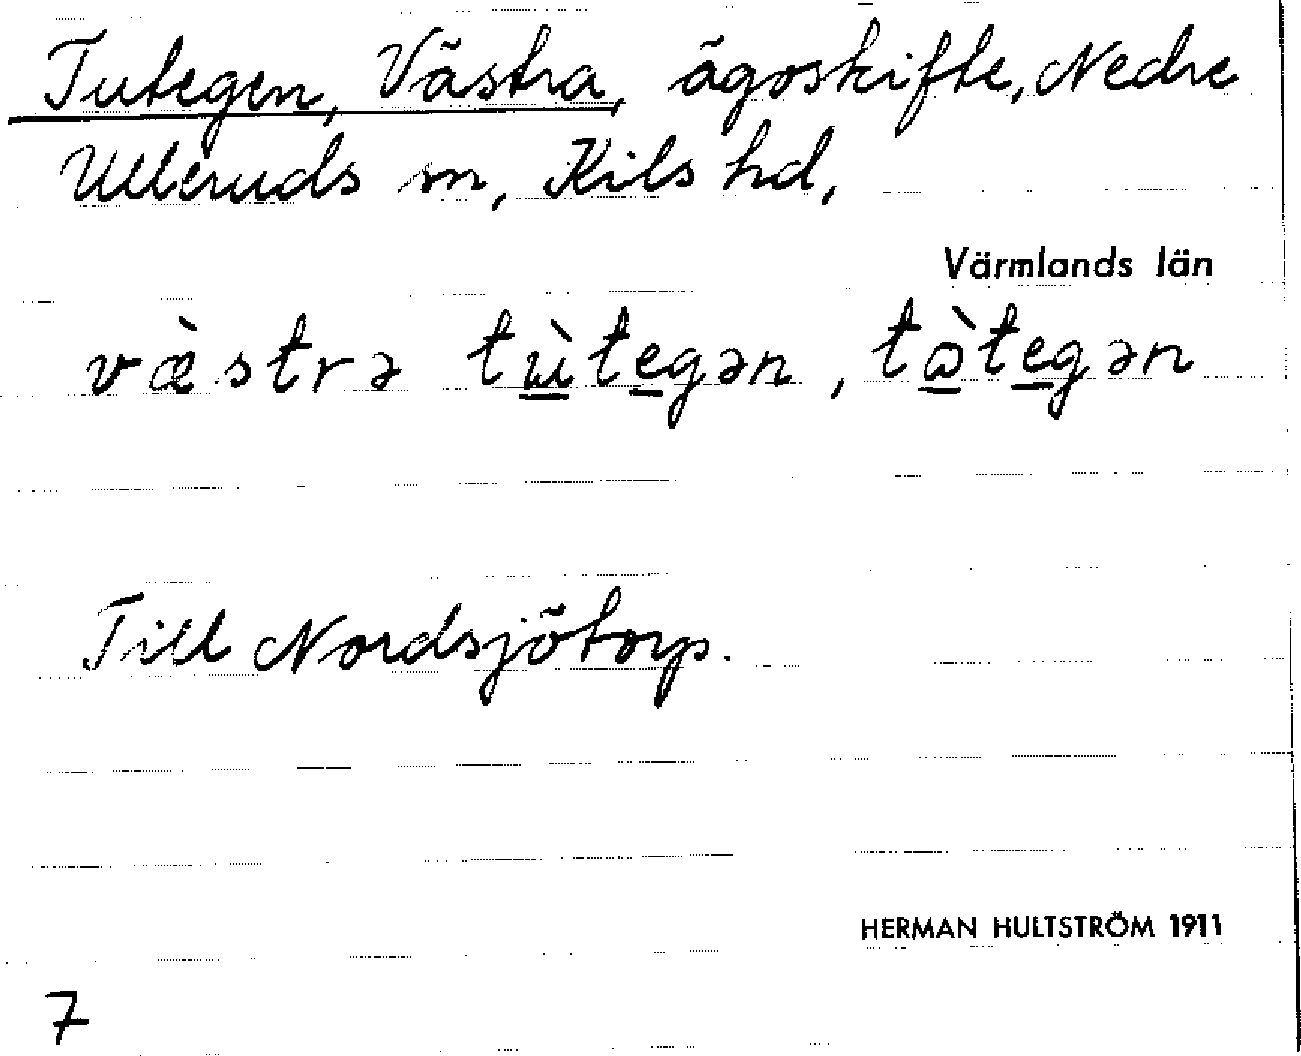 Tutegen, Västra, ägoskifte, Nedre
Ulleruds sn, Kils hd,
Värmlands län
væ̀strə tɯ̀tegən, tɷ̀tegən
Till Nordsjötorp.
HERMAN HULTSTRÖM 1911
7